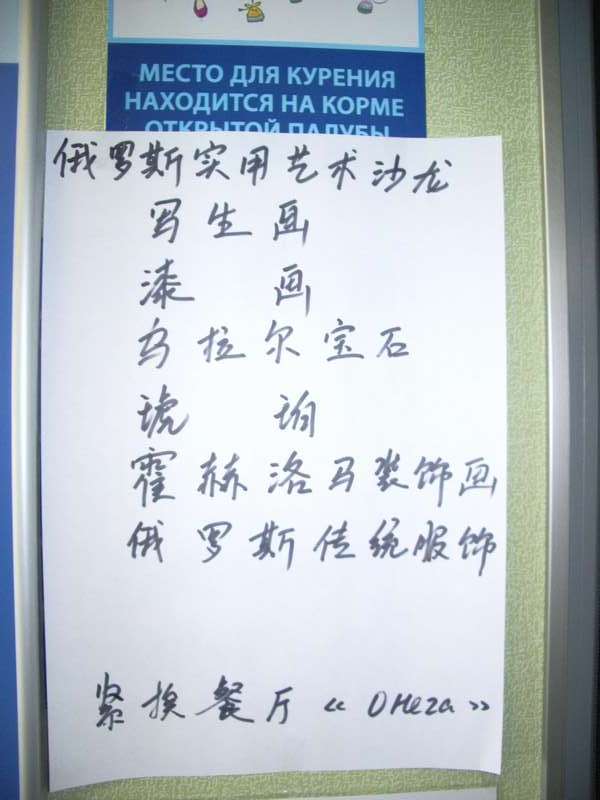 МЕСТО ДЛЯ КУРЕНИЯ
НАХОДИТСЯ НА КОРМЕ
ОТКРЫТОЙ ПАЛУБЫ
俄罗斯实用艺术沙龙
写生画
漆 画
乌拉尔宝石
琥 珀
霍赫洛马装饰画
俄罗斯传统服饰
紧挨餐厅 «Онега»